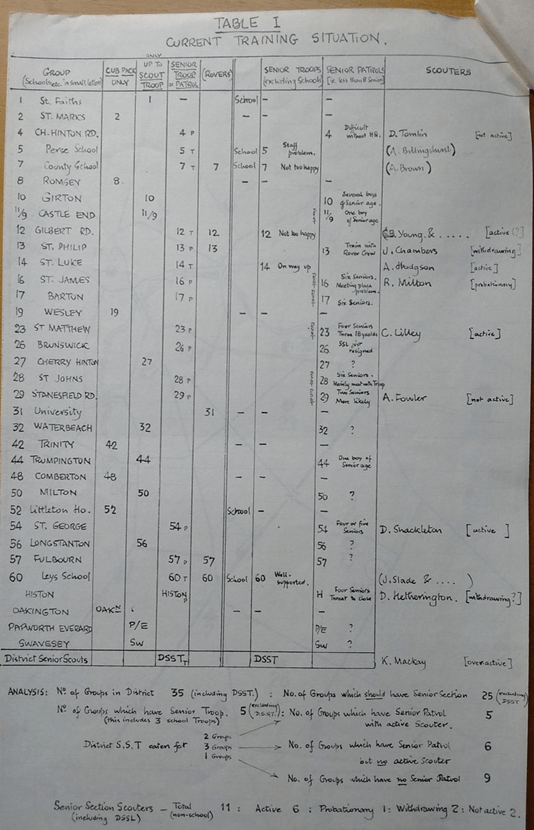 TABLE I
CURRENT TRAINING SITUATION.
GROUP (Schools etc. in small letters) CUB PACK ONLY UP TO SCOUT TROOP ONLY SENIOR TROOP or PATROL ROVERS SENIOR TROOPS (excluding Schools) SENIOR PATROLS SCOUTERS
1 St. Faiths 1 – School –
2 ST. MARKS 2 – –
4 CH. HINTON RD. 4 P 4 Difficult without H.Q. D. Tomlin [not active]
5 Perse School 5 T School 5 Staff problem. (A. Billinghurst)
7 County School 7 T 7 School 7 Not too happy (A. Brown)
8 ROMSEY 8 – –
10 GIRTON 10 10 Several boys of Senior age.
11/9 CASTLE END 11/9 11/9 One boy of Senior age.
12 GILBERT RD. 12 T 12 12 Not too happy Young & ..... [active ?]
13 ST. PHILIP 13 P 13 13 Train with Rover Crew J. Chambers [withdrawing]
14 ST. LUKE 14 T 14 On way up A. Hudgson [active]
16 ST. JAMES 16 P 16 Six Seniors. Meeting place problem. R. Milton [probationary]
17 BARTON 17 P 17 Six Seniors.
19 WESLEY 19 – –
23 ST MATTHEW 23 P 23 Four Seniors C. Lilley [active]
26 BRUNSWICK 26 P 26 SSL just resigned
27 CHERRY HINTON 27 27 ?
28 ST JOHNS 28 P 28 Six Seniors. Mainly meet with Troop
29 STANESFIELD RD. 29 P 29 Two Seniors More likely A. Fowler [not active]
31 University 31 – –
32 WATERBEACH 32 32 ?
42 TRINITY 42 – –
44 TRUMPINGTON 44 44 One boy of Senior age
48 COMBERTON 48 – –
50 MILTON 50 50 ?
52 Littleton Ho. 52 School –
54 ST. GEORGE 54 P 54 Four or five Seniors D. Shackleton [active]
56 LONGSTANTON 56 56 ?
57 FULBOURN 57 P 57 57 ?
60 Leys School 60 T 60 School 60 Well-supported. (J. Slade & ....)
HISTON HISTON P H Four Seniors Threat to close D. Hetherington. [withdrawing?]
OAKINGTON OAKN – –
PAPWORTH EVERARD P/E P/E ?
SWAVESEY SW SW ?
District Senior Scouts DSST T DSST K. Mackay [overactive]
ANALYSIS: No of Groups in District 35 (including DSST.) : No. of Groups which should have Senior Section 25 (excluding DSST)
No of Groups which have Senior Troop. (this includes 3 school Troops) 5 (excluding D.S.S.T) : No. of Groups which have Senior Patrol with active Scouter. 5
District S.S.T caters for 2 Groups 3 Groups 1 Groups
No. of Groups which have Senior Patrol but no active Scouter 6
No. of Groups which have no Senior Patrol 9
Senior Section Scouters – Total 11 : Active 6 : Probationary 1 : Withdrawing 2 : Not active 2.
(including DSSL) (non-school)